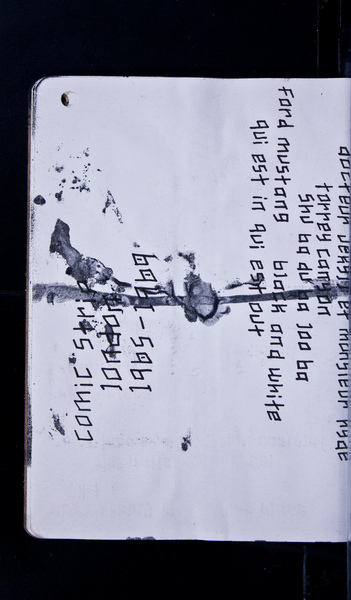 comic strip
london
1965-1969
docteur jekyll et monsieur hyde
torrey canyon
shu ba du ba loo ba
ford mustang black and white
qui est in qui est out